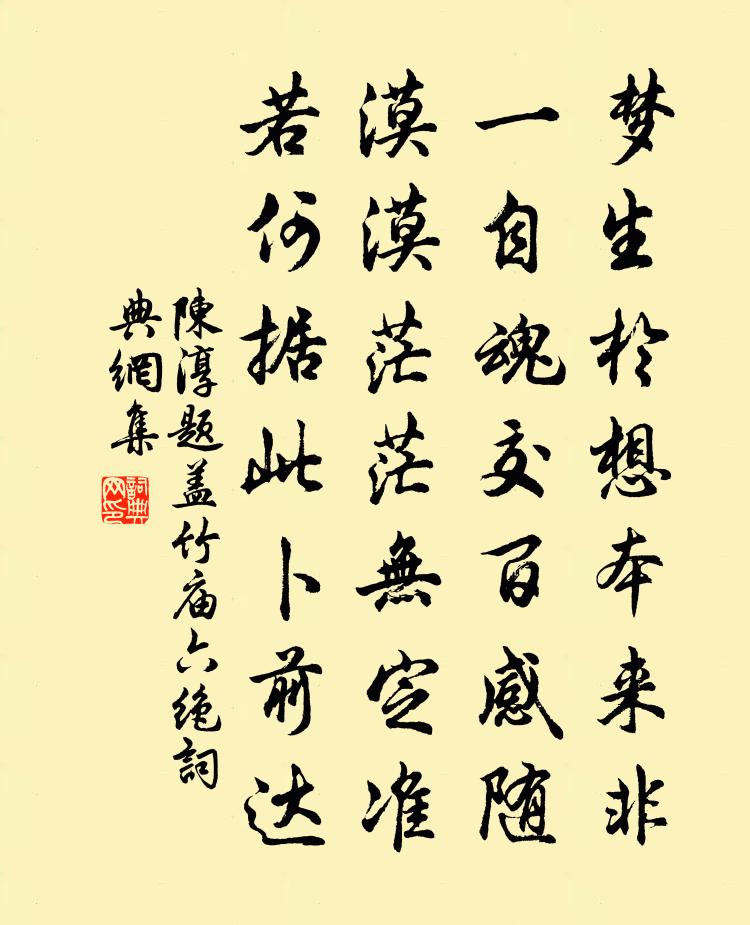 梦生於想本来非
一自魂交百感随
漠漠茫茫無定准
若何据此卜前达
陳淳题盖竹庙六绝詞
典網集
詞典網印